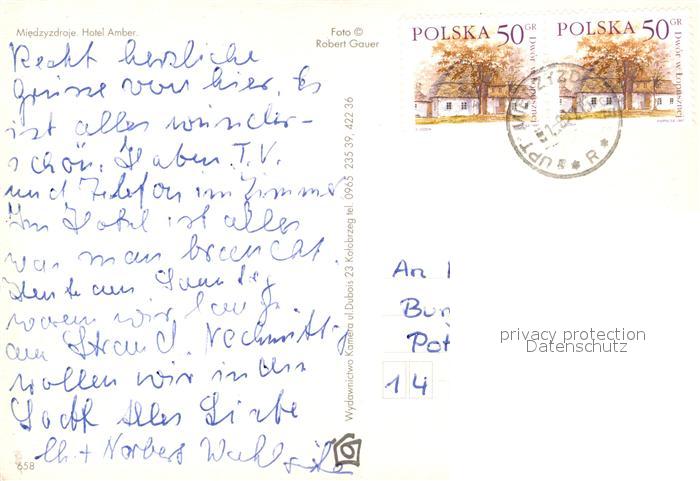 Międzyzdroje. Hotel Amber.
Foto ©
Robert Gauer
Recht herzliche
Grüsse von hier. Es
ist alles wunder-
schön. Haben T.V.
und Telefon im Zimmer
Im Hotel ist alles
was man braucht.
Heute am Samstag
waren wir lange
am Strand. Nachmittag
wollen wir in die
Stadt Alles Liebe
+ Norbert
658
Wydawnictwo Kamera ul.Dubois 23 Kołobrzeg tel. 0965 235 39, 422 36
POLSKA 50 GR
Dwór w Łopusznej
POLSKA 50 GR
Dwór w Łopusznej
UPT
R
An
Bur
Pot
14
privacy protection
Datenschutz